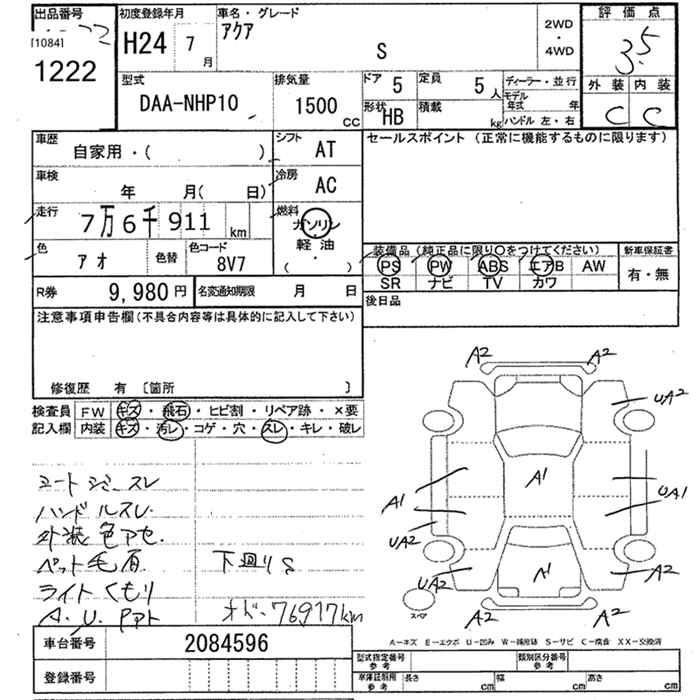 出品番号
[1084]
1222
初度登録年月
H24 7 月
車名・グレード
アクア
S
2WD
・
4WD
評価点
3.5
外装 内装
C C
型式
DAA-NHP10
排気量
1500 cc
ドア 5
定員 5 人
ディーラー・並行
形状 HB
積載 kg
モデル年式 年
ハンドル 左・右
車歴
自家用・( )
シフト AT
セールスポイント (正常に機能するものに限ります)
車検
年 月( 日)
冷房 AC
走行
7万6千911 km
燃料
ガソリン
・
軽油
( )
色
アオ
色替
色コード
8V7
装備品 (純正品に限り○をつけてください)
PS PW ABS エアB AW
SR ナビ TV カワ
新車保証書
有・無
R券 9,980円
名変通知期限 月 日
後日品
注意事項申告欄(不具合内容等は具体的に記入して下さい)
修復歴 有 〔箇所 〕
検査員 FW キズ・飛石・ヒビ割・リペア跡・×要
記入欄 内装 キズ・汚レ・コゲ・穴・スレ・キレ・破レ
シミ スレ
ハンドルスレ
外装色アセ
ペット毛有
下廻りS
ライトくもり
A.U.
オドー76917km
A2 A2
UA2
A1
A1
UA1
UA2
UA2
A1
A2
スペア
A2 A2
A-キズ E-エクボ U-凹み W-補修跡 S-サビ C-腐食 XX-交換済
車台番号 2084596
登録番号
型式指定番号
参考
類別区分番号
参考
車庫証明用
参考
長さ cm
幅 cm
高さ cm